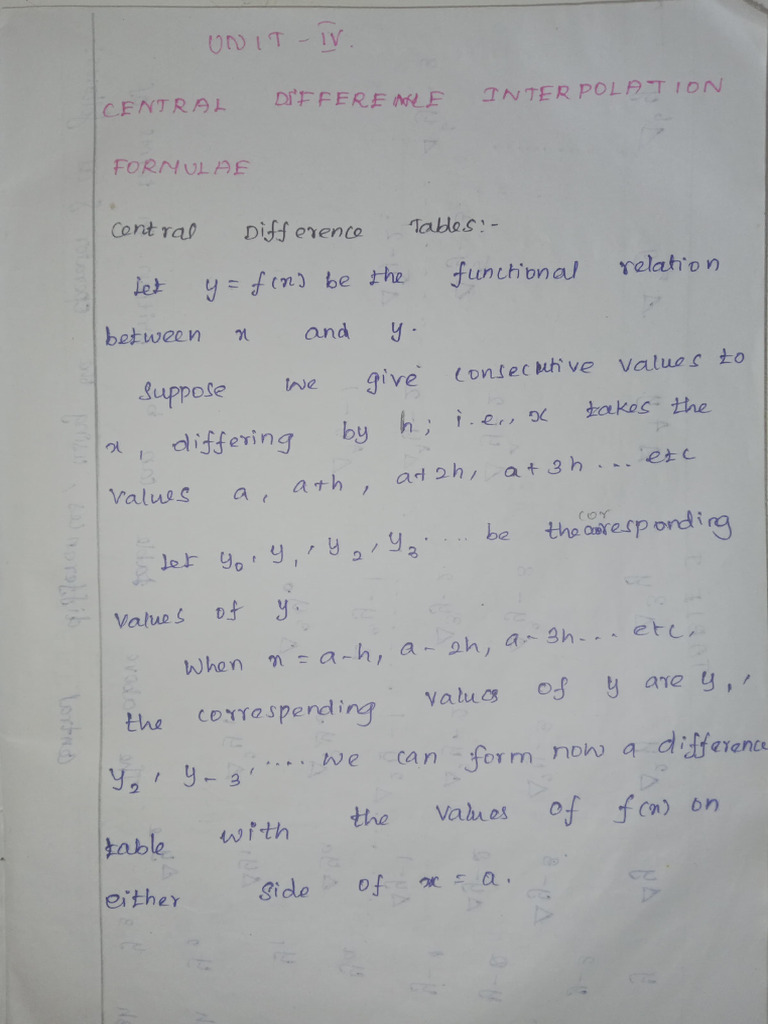 UNIT - IV.
CENTRAL DIFFERENCE INTERPOLATION
FORMULAE
Central Difference Tables:-
Let y = f(x) be the functional relation
between x and y.
Suppose we give consecutive values to
x, differing by h; i.e., x takes the
values a, a+h, a+2h, a+3h ... etc
Let y₀, y₁, y₂, y₃ .... be the corresponding
values of y.
When x = a-h, a-2h, a-3h... etc,
the correspending values of y are y₁,
y₂, y₋₃, .... we can form now a difference
table with the values of f(x) on
either side of x = a.